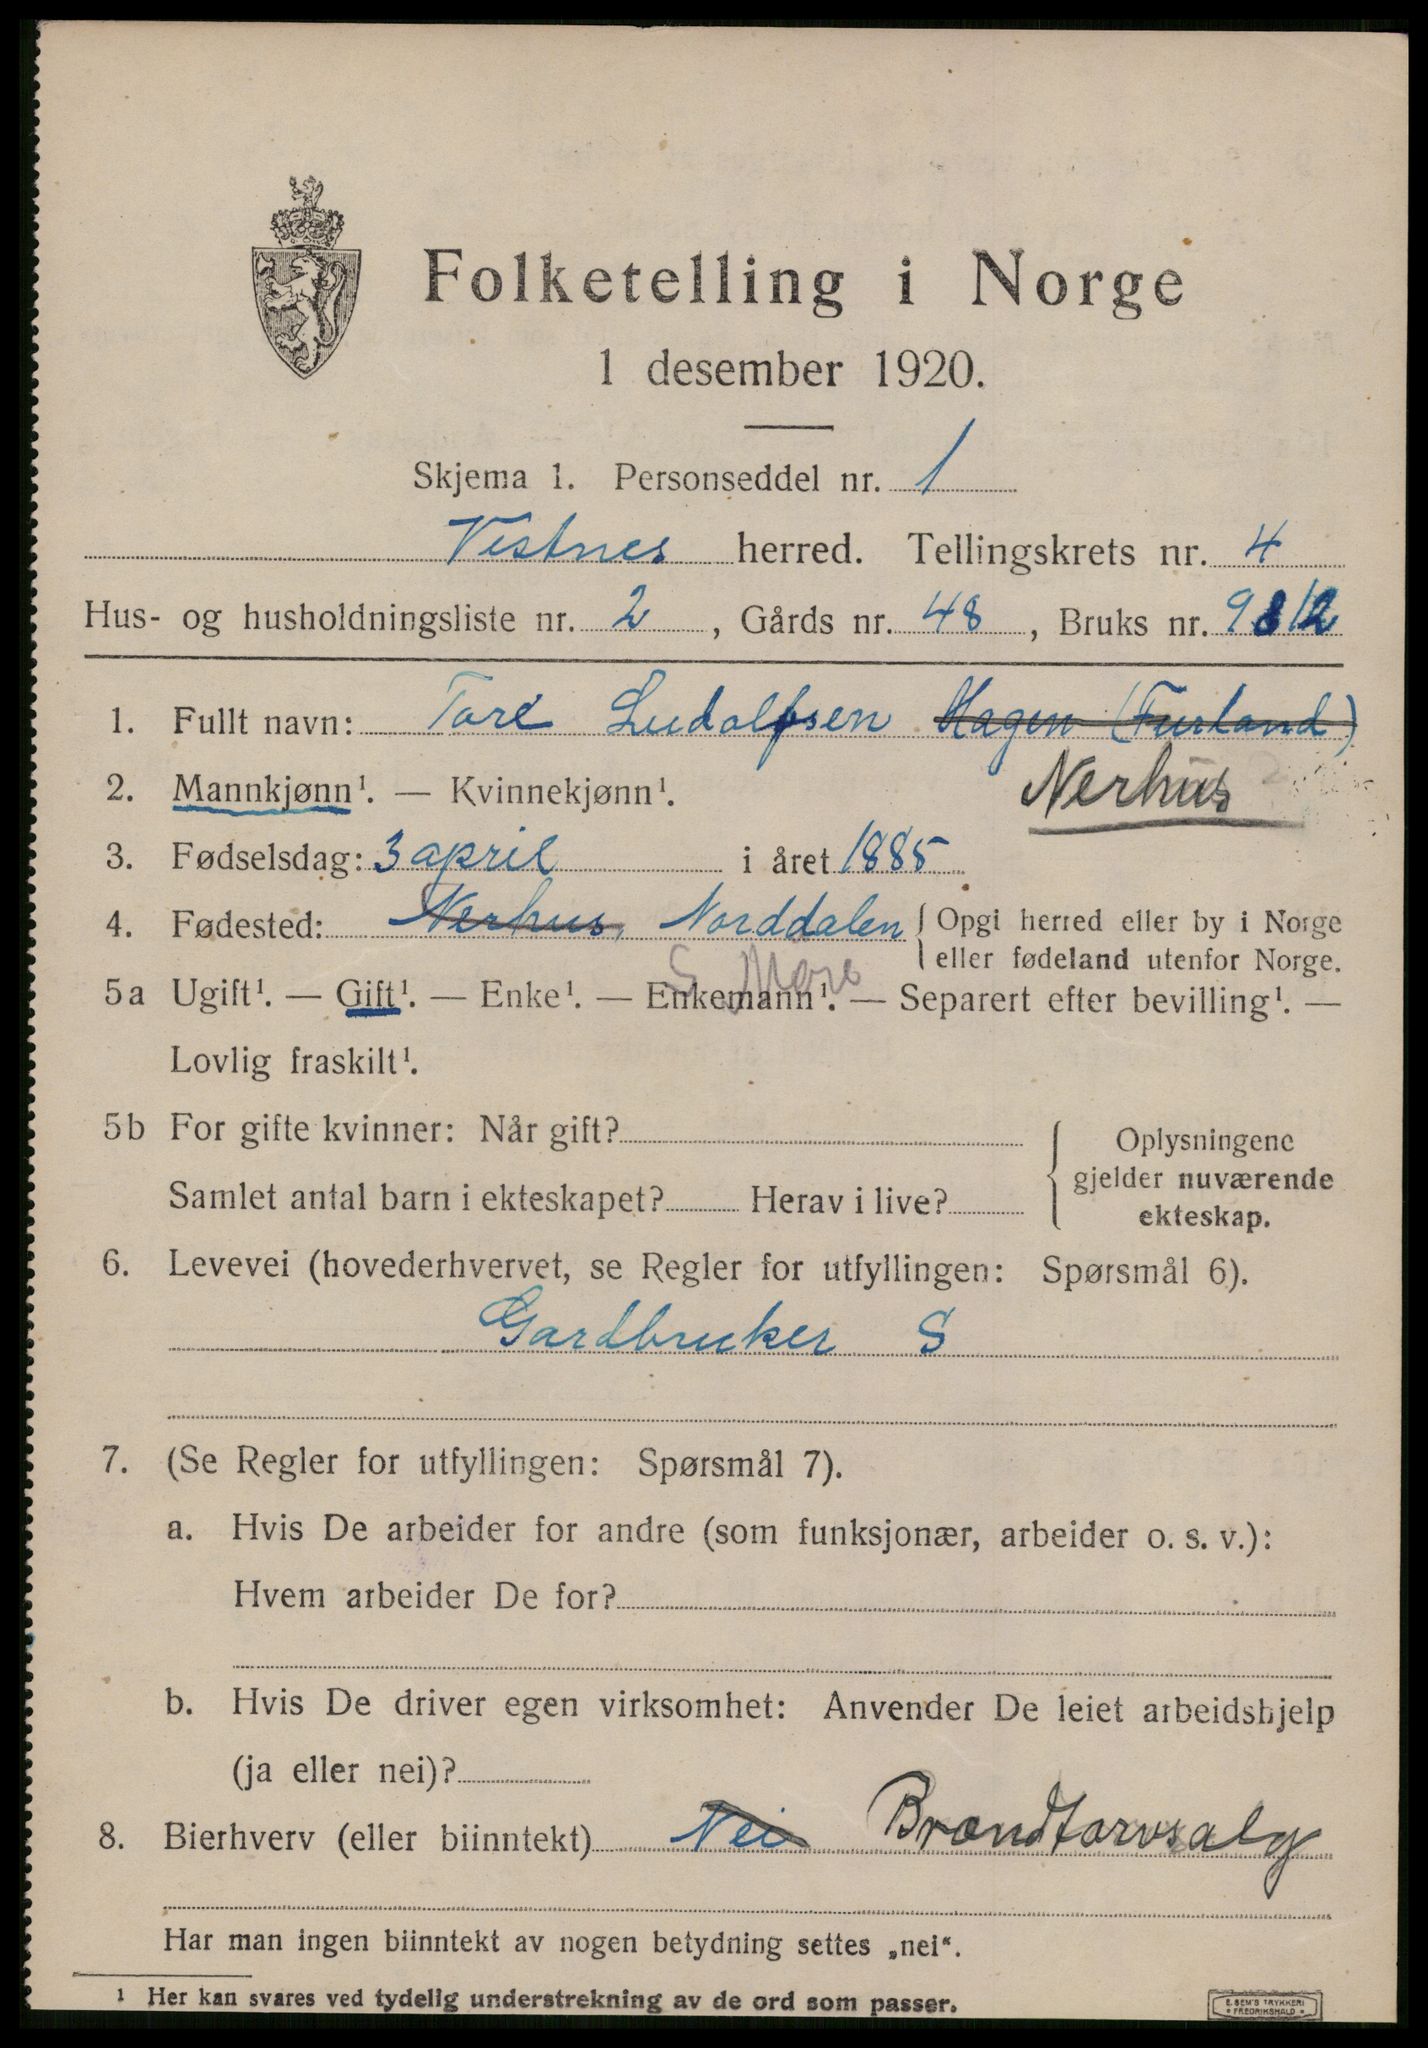 Folketelling i Norge
1 desember 1920.
Skjema 1. Personseddel nr. 1
Vestnes herred. Tellingskrets nr. 4
Hus- og husholdningsliste nr. 2, Gårds nr. 48, Bruks nr. 12
1. Fullt navn: Tore Ludolfsen Hagen (Furland)
Nerhus
2. Mannkjønn¹. — Kvinnekjønn¹.
3. Fødselsdag: 3 april i året 1885
4. Fødested: Nerhus, Norddalen { Opgi herred eller by i Norge
eller fødeland utenfor Norge.
S. Møre
5a Ugift¹. — Gift¹. — Enke¹. — Enkemann¹. — Separert efter bevilling¹. —
Lovlig fraskilt¹.
5b For gifte kvinner: Når gift?
Samlet antal barn i ekteskapet? Herav i live?
Oplysningene
gjelder nuværende
ekteskap.
6. Levevei (hovederhvervet, se Regler for utfyllingen: Spørsmål 6).
Gardbruker S
7. (Se Regler for utfyllingen: Spørsmål 7).
a. Hvis De arbeider for andre (som funksjonær, arbeider o. s. v.):
Hvem arbeider De for?
b. Hvis De driver egen virksomhet: Anvender De leiet arbeidshjelp
(ja eller nei)?
8. Bierhverv (eller biinntekt) Nei Brændtorvsalg
Har man ingen biinntekt av nogen betydning settes „nei“.
¹ Her kan svares ved tydelig understrekning av de ord som passer.
E. SEM'S TRYKKERI
FREDRIKSHALD